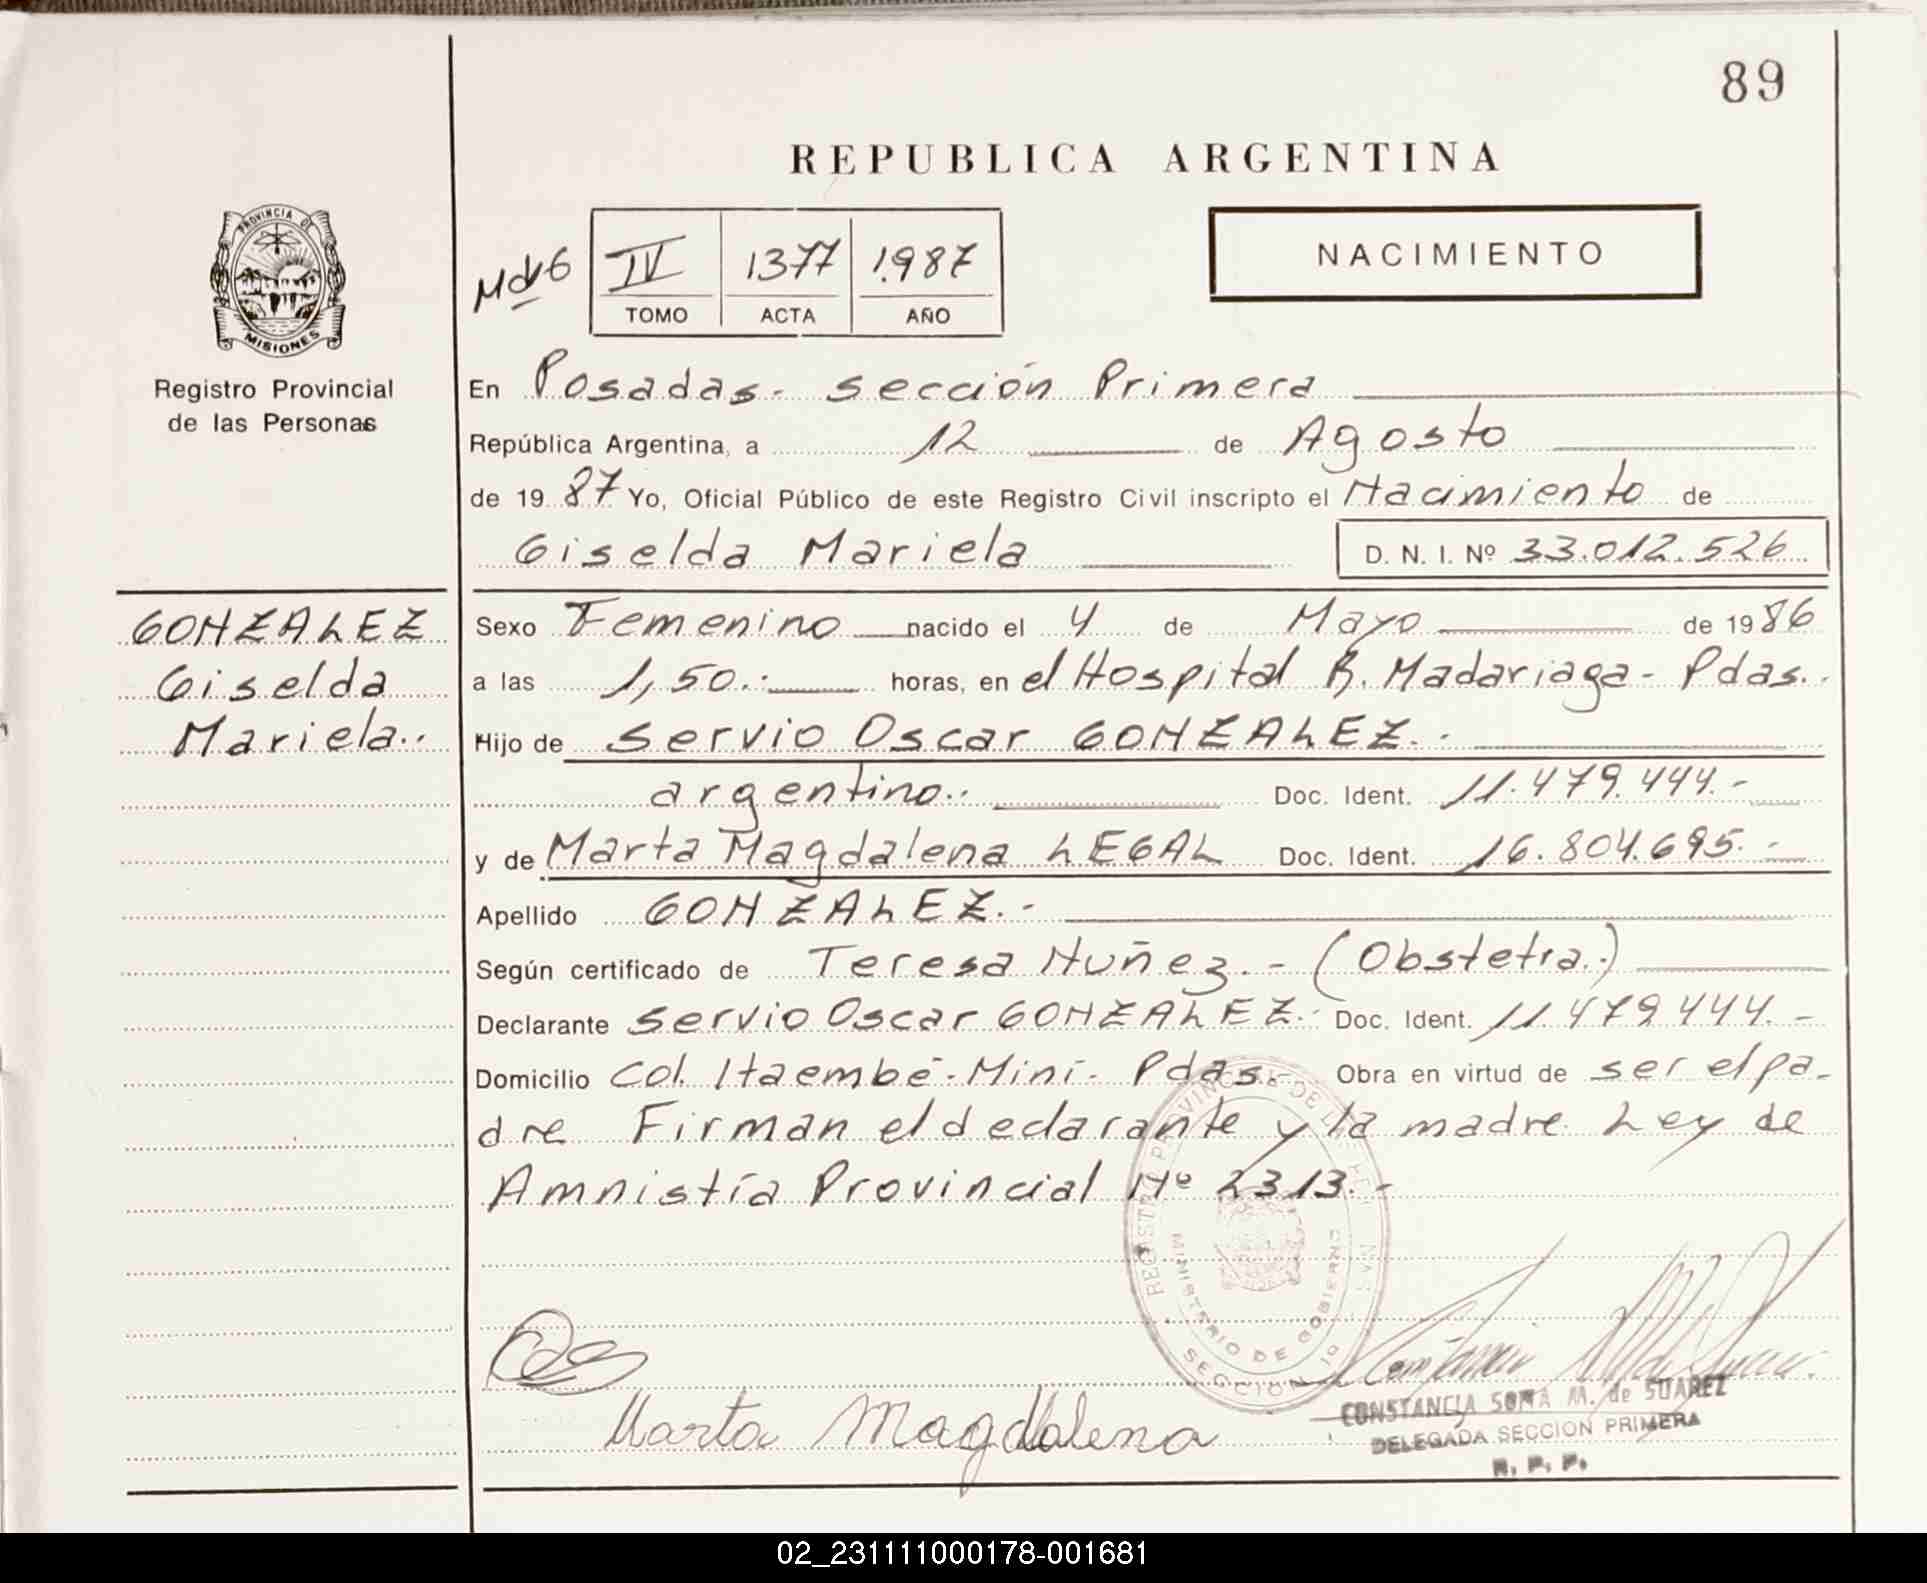 89
REPUBLICA ARGENTINA
PROVINCIA DE
MISIONES
Registro Provincial
de las Personas
IV 1377 1.987
TOMO ACTA AÑO
NACIMIENTO
En Posadas- sección Primera
República Argentina, a 12 de Agosto
de 19 87 Yo, Oficial Público de este Registro Civil inscripto el Nacimiento de
Giselda Mariela D. N. I. Nº 33.012.526
GONZALEZ
Giselda
Mariela..
Sexo Femenino nacido el 4 de Mayo de 19 86
a las 1,50.- horas, en el Hospital R. Madariaga- Pdas..
Hijo de Servio Oscar GONZALEZ.-
argentino.. Doc. Ident. 11.479.444.-
y de Marta Magdalena LEGAL Doc. Ident. 16.804.695.-
Apellido GONZALEZ.-
Según certificado de Teresa Nuñez.- (Obstetra.)
Declarante Servio Oscar GONZALEZ. Doc. Ident. 11.479.444.-
Domicilio Col. Itaembé-Mini- Pdas. Obra en virtud de ser el pa-
dre Firman el declarante y la madre. Ley de
Amnistía Provincial Nº 2313.-
MINISTERIO DE GOBIERNO
Marta Magdalena
CONSTANCIA SONIA M. de SUAREZ
DELEGADA SECCION PRIMERA
R. P. P.
02_231111000178-001681